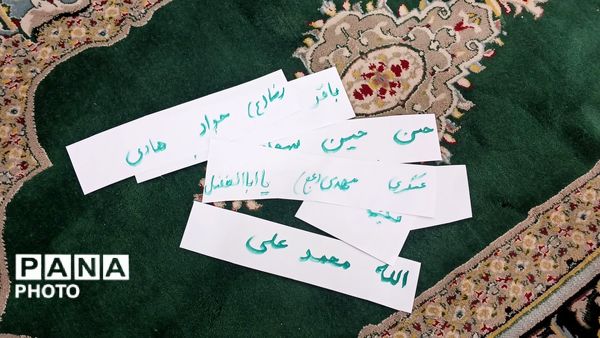 باقر
رضا(ع) جواد هادی
حسن حسین سجاد
عسگری مهدی(عج) یا اباالفضل
الله محمد علی
PANA
PHOTO